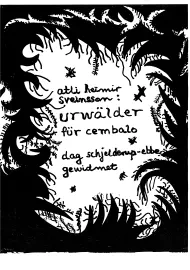 atli heimir
sveinsson:
urwälder
für cembalo
dag schjelderup-ebbe
gewidmet